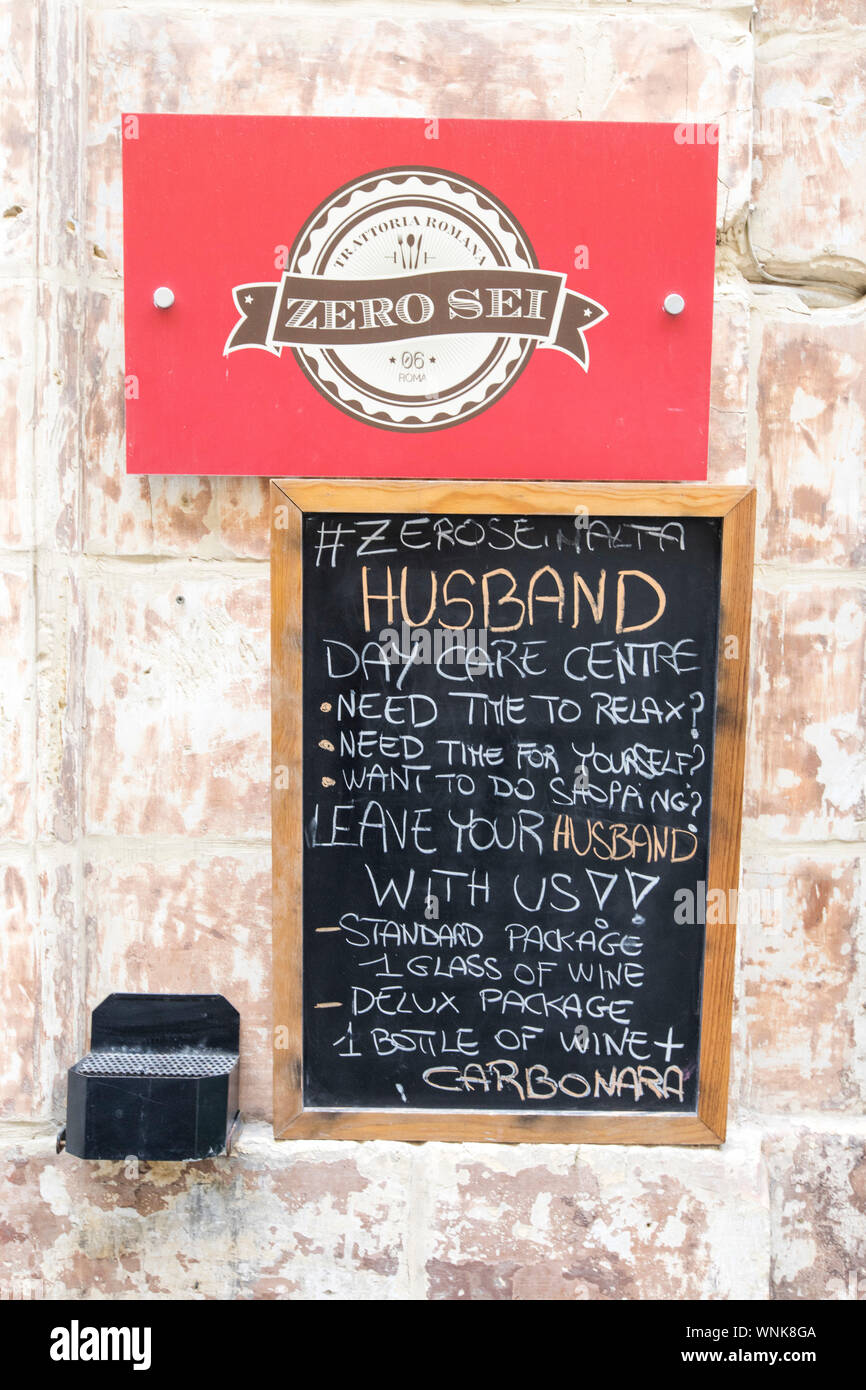 TRATTORIA ROMANA
ZERO SEI
06
ROMA
#ZEROSEIMALTA
HUSBAND
DAY CARE CENTRE
• NEED TIME TO RELAX?
• NEED TIME FOR YOURSELF?
• WANT TO DO SHOPPING?
LEAVE YOUR HUSBAND
WITH US!!
- STANDARD PACKAGE
1 GLASS OF WINE
- DELUX PACKAGE
1 BOTTLE OF WINE +
CARBONARA
a alamy stock photo
WNK8GA
www.alamy.com